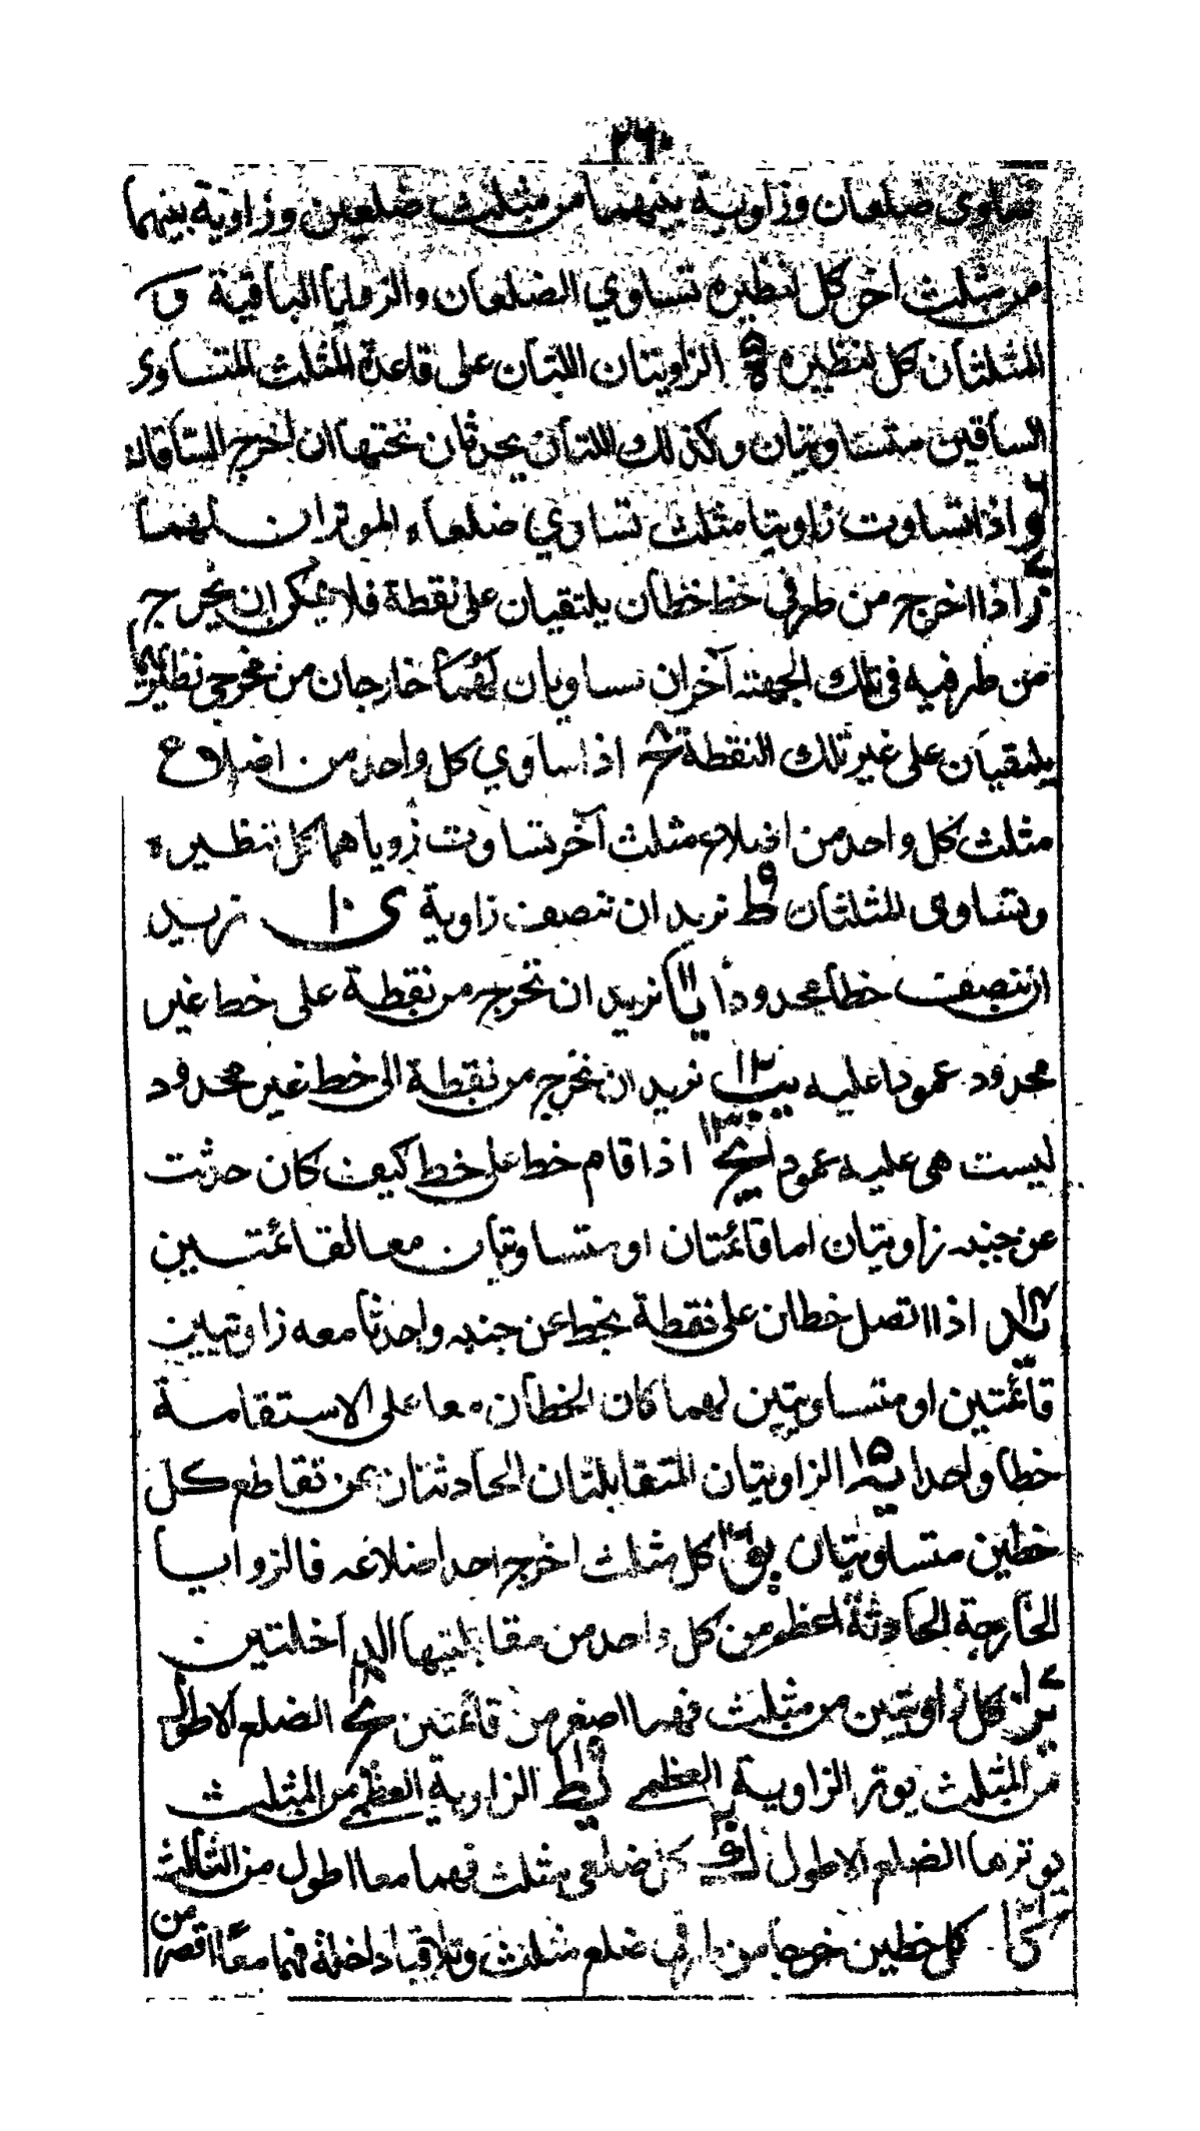 ٢٦٠
تساوى ضلعان وزاوية بينهما من مثلث ضلعين وزاوية بينهما
من مثلث اخر كل لنظيره تساوي الضلعان والزوايا الباقية و
المثلثان كل لنظيره ه الزاويتان اللتان على قاعدة المثلث المتساوى
الساقين متساويتان وكذلك اللتان يحدثان تحتها ان اخرج الساقان
و اذا تساوت زاويتا مثلث تساوي ضلعاه الموتران لهما
ز اذا اخرج من طرفى خط خطان يلتقيان على نقطة فلا يمكن ان يخرج
من طرفيه فى تلك الجهته آخران يساويان لهما خارجان من مخرجى نظيرهما
يلتقيان على غير تلك النقطة ح اذا ساوي كل واحد من اضلاع
مثلث كل واحد من اضلاع مثلث آخر تساوت زوياهما كل لنظيره
وتساوى المثلثان ط ٩ نريد ان ننصف زاوية ى ١٠ نريد
ان ننصف خطا محدودا يا ١١ نريد ان نخرج من نقطة على خط غير
محدود عمودا عليه يب ١٢ نريد ان نخرج من نقطة الى خط غير محدود
ليست هى عليه عمودا يج ١٣ اذا قام خط على خط كيف كان حدثت
عن جنبه زاويتان اما قائمتان او متساويتان معا لقائمتين
يد ١٤ اذا اتصل خطان على نقطة بخط عن جنبه واحدثا معه زاويتين
قائمتين او متساويتين لهما كان الخطان معا على الاستقامة
خطا واحدا يه ١٥ الزاويتان المتقابلتان الحادثتان من تقاطع كل
خطين متساويتان يو ١٦ كل مثلث اخرج احد اضلاعه فالزوايا
الخارجة الحادثة اعظم من كل واحد من مقابلتيها الداخلتين
يز ١٧ كل زاويتين من مثلث فهما اصغر من قائمتين يح ١٨ الضلع الاطول
من المثلث يوتر الزاوية العظمى يط ١٩ الزاوية العظمى من المثلث
يوترها الضلع الاطول ك ٢٠ كل ضلعى مثلث فهما معا اطول من الثالث
كا ٢١ كل خطين خرجا من طرفى ضلع مثلث وتلاقيا داخله فهما معًا اقصر من